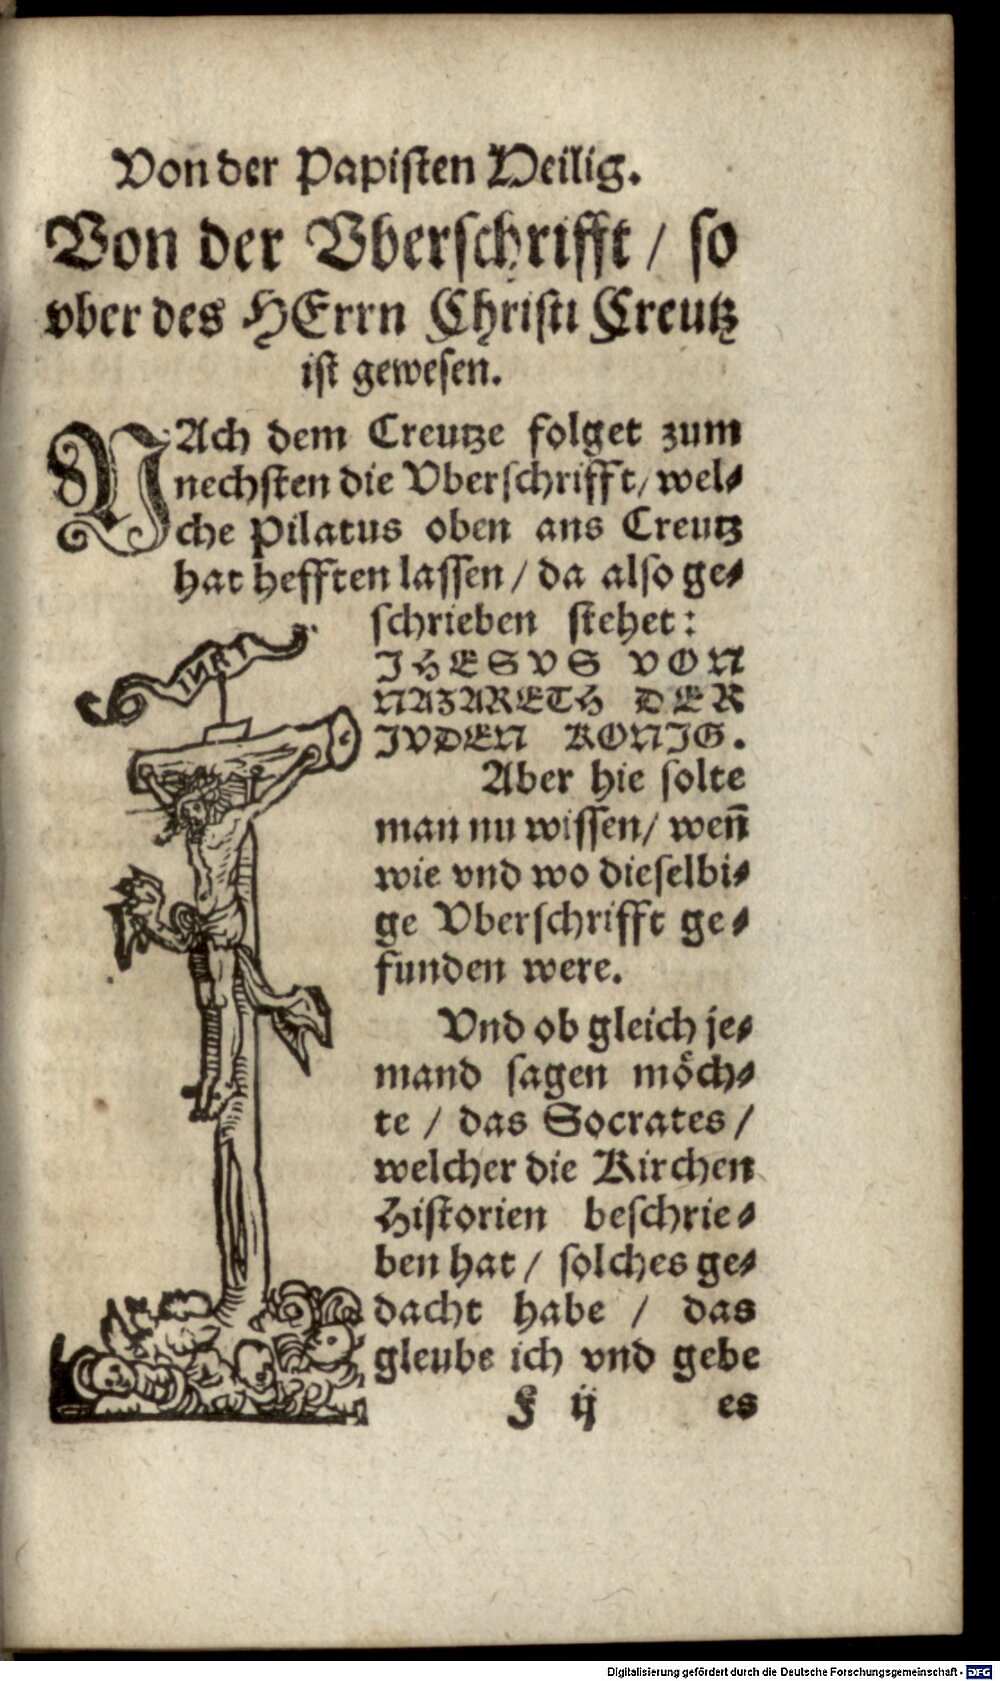 Von der Papisten Heilig.
Von der Vberschrifft / so
vber des HErrn Christi Creutz
ist gewesen.
NAch dem Creutze folget zum
nechsten die Vberschrifft / wel⸗
che Pilatus oben ans Creutz
hat hefften lassen / da also ge⸗
schrieben stehet:
JHESVS VON
NAZARETH DER
JVDEN KONIG.
Aber hie solte
man nu wissen / weñ
wie vnd wo dieselbi⸗
ge Vberschrifft ge⸗
funden were.
Vnd ob gleich je⸗
mand sagen möch⸗
te / das Socrates /
welcher die Kirchen
Historien beschrie⸗
ben hat / solches ge⸗
dacht habe / das
gleube ich vnd gebe
F ij es
INRI
Digitalisierung gefördert durch die Deutsche Forschungsgemeinschaft - DFG